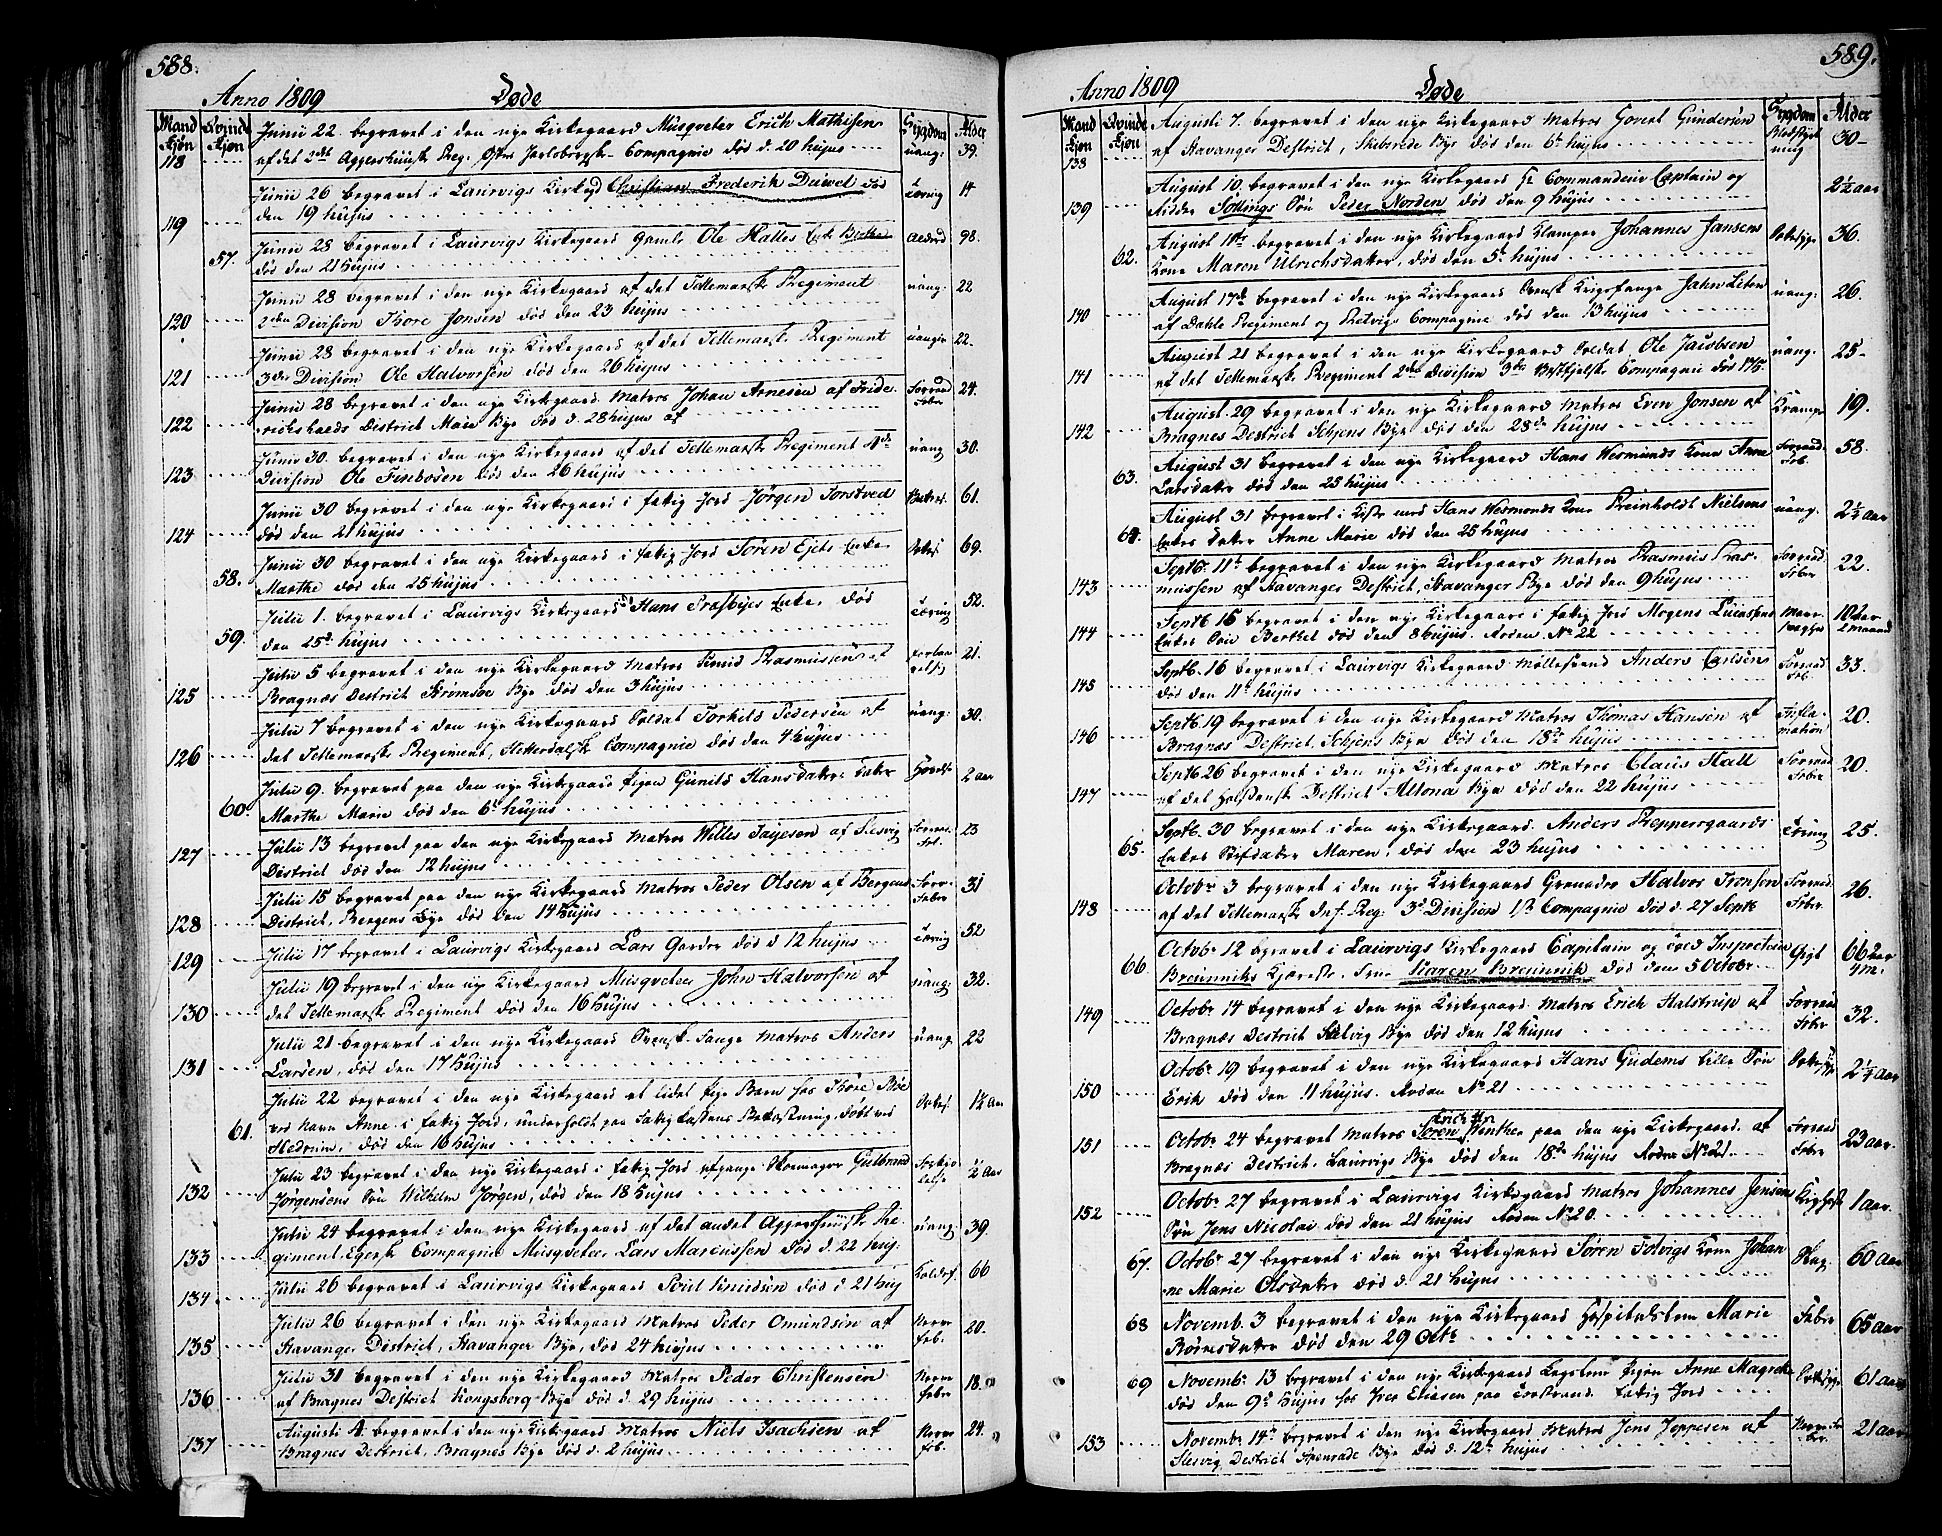 588.
Anno 1809 Døde
Mandkjøn Qvindekjøn Sygdom Alder
118 Junii 22. begravet i den nye Kirkegaard Musqveter Erich Mathisen uang: 39.
af det 2det Aggershuusk Reg. Østre Jarlsbergsk Compagnie død d. 20 hujus
119 Junii 26 begravet i Laurvigs Kirke Christian Frederik død Tæring 14
den 19 hujus
57. Junii 28 begravet i Laurvigs Kirkegaard gamle Ole Halles Enke Berthe Alderd 98.
død den 21 hujus
120 Junii 28 begravet i den nye Kirkegaard af det Tellemarske Regiment uang: 22
2den Division Thore Jonsen død den 23 hujus
121 Junii 28 begravet i den nye Kirkegaard af det Tellemarske Regiment uang: 22.
3die Division Ole Halvorsen død den 26 hujus
122 Junii 28 begravet i den nye Kirkegaard. Matros Johan Arnesen af Fride Forraad Feber 24.
richshalds District Bye død d. 28 hujus
123 Junii 30. begravet i den nye Kirkegaard af det Tellemarske Regiment uang 30.
Division Ole Finbosen død den 26 hujus
124 Junii 30 begravet i den nye Kirkegaard i fattig Jord Jørgen Torstved 61.
død den 21 hujus
58. Junii 30 begravet i den nye Kirkegaard i fattig Jord Søren Ejets Enke 69.
Marthe død den 25 hujus
59. Julii 1. begravet i Laurvigs Kirkegaard Hans Træsbyes Enke, død Tæring 52.
den 25 hujus
125 Julii 5 begravet i den nye Kirkegaard Matros Rasmussen af 21.
Bragnæs Destrict Bye død den 3 hujus
126 Julii 7 begravet i den nye Kirkegaard Soldat Torkild Pedersen af uang: 30.
det Tellemarske Regiment, Hitterdalske Compagnie død den 4 hujus
60. Julii 9. begravet paa den nye Kirkegaard Pigen Gunild Hansdatter 2 aar
Marthe Marie død den 6 hujus
127 Julii 13 begravet paa den nye Kirkegaard Matros Willes Tayesen af Slesvig 23
District død den 12 hujus
128 Julii 15 begravet paa den nye Kirkegaard Matros Peder Olsen af Bergens Forr. Feber 31
District, Bergens Bye død den 14 hujus
129 Julii 17 begravet i Laurvigs Kirkegaard Lars Garder død d 12 hujus Tæring 52
130 Julii 19 begravet i den nye Kirkegaard Musqveter John Halvorsen af uang: 32.
det Tellemarsk Regiment død den 16 hujus
131 Julii 21 begravet i den nye Kirkegaard Svensk Fange Matros Anders uang. 22
Larsen, død den 17 hujus
61. Julii 22 begravet i den nye Kirkegaard et lidet Pige Barn hos Thore Bøe 1½ aar
ved navn Anne i fattig Jord, underholdt paa Fattig Cassens Bekostning, døbt ved
Hedrum, død den 16 hujus
132 Julii 23 begravet i den nye Kirkegaard i fattig Jord afgangne Skomager Gulbrand ½ Aar
Jørgensens Søn Wilhelm Jørgen, død den 18 hujus
133 Julii 24 begravet i den nye Kirkegaard af det andet Aggershuusk Re uang: 39.
giment. Egersk Compagnie Musqveter Lars Marcussen død d. 22 huj:
134 Julii 26 begravet i Laurvigs Kirkegaard Poul Knudsen død d 21 huj Koldf. 66
135 Julii 26 begravet i den nye Kirkegaard Matros Peder Omundsen af Nerve feb. 20.
Stavanger District, Stavanger Bye, død 24 hujus
136 Julii 31 begravet i den nye Kirkegaard Matros Peder Christensen Nerve feber 18.
af Bragnes Destrict Kongsberg Bye død d. 29 hujus
137 Augusti 4. begravet i den nye Kirkegaard Matros Niels Isachsen af Nerve Feb. 24.
Bragnes Destrict, Bragnes Bye død d. 2 hujus
589.
Anno 1809 Døde
Mandkjøn Qvindekjøn Sygdom Alder
138 Augusti 7. begravet i den nye Kirkegaard Matros Goret Gundersen Blodstyrtning 30
af Stavanger Destrict, Bye død den 6te hujus
139 August 10. begravet i den nye Kirkegaard Hr Commandeur Captain og 2½ aar
Ridder Sollings Søn Peder Norden død den 9 hujus
62. August 10te begravet i den nye Kirkegaard Klamper Johannes Jansens 36.
Kone Maren Ulrichsdatter, død den 5te hujus
140 August 17de begravet i den nye Kirkegaard Svensk Krigsfange Jahn Liten uang: 26.
af Dahle Regiment og Retvigs Compagnie død den 13 hujus
141 August 21 begravet i den nye Kirkegaard Soldat Ole Jacobsen uang: 25
af det Tellemarske Regiment 2den Division 3die Compagnie død 17
142 August. 29 begravet i den nye Kirkegaard Matros Even Jonsen af Krampe 19.
Bragnes Destrict Schiens Bye død den 28de hujus
63. August 31 begravet i den nye Kirkegaard Hans Wesmunds Kone Anne Forraad. Feb. 58.
Larsdatter død den 25 hujus
64. August 31 begravet i Kiste med Hans Wesmunds Kone Reinholdt Nielsens uang. 2½ aar
Enkes datter Anne Marie død den 25 hujus
143 Septb. 11te begravet i den nye Kirkegaard Matros Rasmus Ras Forraad. Feber 22.
mussen af Stavanger Destrict, Stavanger Bye død den 9 hujus
144 Septb 15 begravet i den nye Kirkegaard i fattig Jord Mogens 10 aar 2 maaned
Enkes Søn Berthel død den 8 hujus. Roden No 22
145 Septb. 16 begravet i Laurvigs Kirkegaard Møllesvend Anders Carlsen Forraad Feb. 33.
død den 11te hujus
146 Septb. 19 begravet i den nye Kirkegaard Matros Thomas Hansen af Inflamation 20.
Bragnæs Destrict. Schjens Bye død den 18de hujus
147 Septb. 26 begravet i den nye Kirkegaard Matros Claus Hall Forraad Feber 20.
af det Holstenske Destrict Altona Bye død den 22 hujus
65. Septb. 30 begravet i den nye Kirkegaard. Anders Reppersgaards Tæring 25.
Enkes Stifdatter Maren, død den 23 hujus
148 Octobr 3 begravet i den nye Kirkegaard Grenader Halvor Tronsen Forraad. Feber 26.
af det Tellemarske Inf: Reg: 3die Division 1ste Compagnie død d. 27 Septb
66. Octobr 12 begravet i Laurvigs Kirkegaard Capitain og Told Inspecteur Gigt 66 aar 4 M.
Breunniks Kjæreste, Frue Karen Breunnik død den 5 Octobr
149 Octobr 14 begravet i den nye Kirkegaard. Matros Erich Halstrup af Forraad Feber 32.
Bragnæs Destrict Bye død den 12 hujus
150 Octobr 19 begravet i den nye Kirkegaard Hans Gudems lille Søn 2¼ aar
Erik død den 11 hujus. Roden No 21
151 Octobr 24 begravet Matros Søren Erich Winther paa den nye Kirkegaard. af Forraad Feber 23 aar
Bragnæs Destrict. Laurvigs Bye død den 18de hujus Roden No 21
152 Octobr 27 begravet i Laurvigs Kirkegaard Matros Johannes Jensens Kighoste 1 aar.
Søn Jens Nicolai død den 21 hujus Roden No 20.
67. Octobr 27 begravet i den nye Kirkegaard Søren Solvigs Kone Johan 60 aar
ne Marie Olsdatter død d. 21 hujus
68 Novemb. 3 begravet i den nye Kirkegaard Hospitalslem Marie Feber 65 aar
død den 29 Octb.
69 Novembr. 13 begravet i den nye Kirkegaard Pigen Anne Magrethe 61 aar
død den 9de hujus hos Iver Eliasen paa Torstrand. fattig Jord
153 Novembr 14de begravet i den nye Kirkegaard Matros Jens Joppesen af Nerve Feber. 21 aar
Slesvig District Apenrade Bye død d. 12te hujus